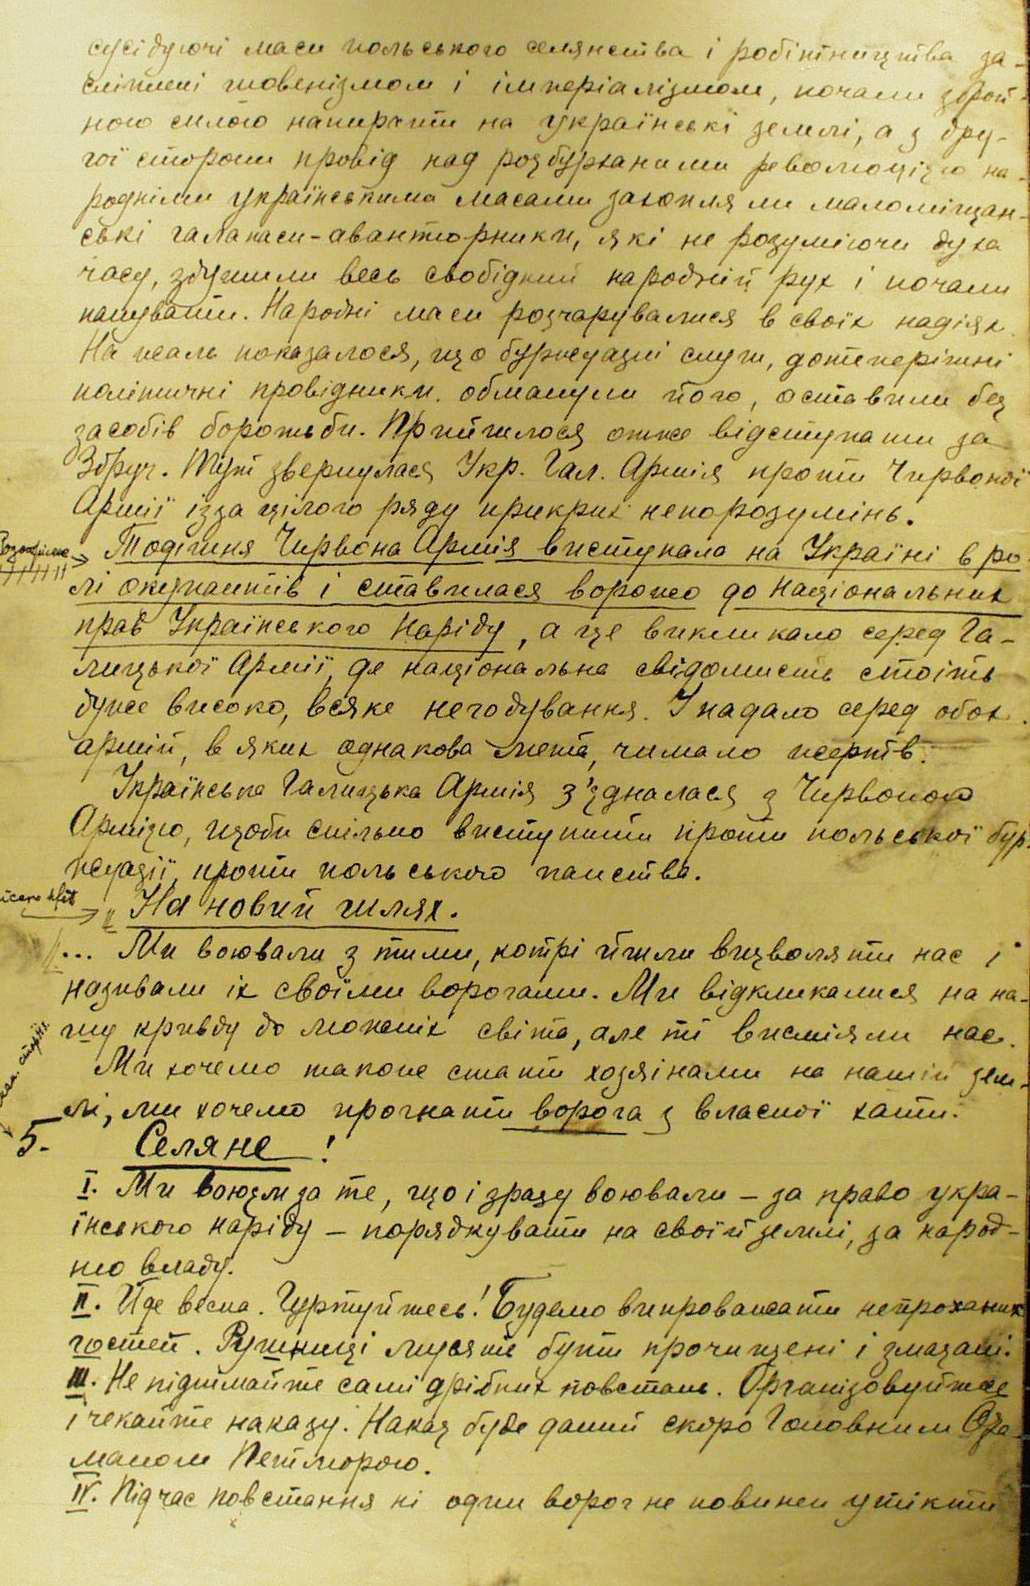 сусідуючі маси польського селянства і робітництва за-
сліплені шовенізмом і імперіалізмом, почали зброй-
ною силою напирати на українські землі, а з дру-
гої сторони провід над розбурханими революцією на-
родніми українськими масами захопляли маломіщан-
ські галапаси-авантюрники, які не розуміючи духа
часу, здушили весь свобідний народній рух і почали
панувати. Народні маси розчарувалися в своїх надіях.
На жаль показалося, що буржуазні слуги, дотеперішні
політичні провідники обманули його, оставили без
засобів боротьби. Прийшлося отже відступати за
Збруч. Тут звернулася Укр. Гал. Армія проти Червоної
Армії ізза цілого ряду прикрих непорозумінь.
Тодішня Червона Армія виступала на Україні в ро-
лі окупантів і ставилася вороже до національних
прав Українського Наріду, а це викликало серед Га-
лицької Армії, де національна свідомість стоїть
дуже високо, всяке негодування. І падало серед обох
армій, в яких однакова мета, чимало жертв.
Українська Галицька Армія з'єдналася з Червоною
Армією, щоби спільно виступити проти польської бур-
жуазії, проти польського панства.
"На новий шлях.
"... Ми воювали з тими, котрі йшли визволяти нас і
називали їх своїми ворогами. Ми відкликалися на на-
шу кривду до можніх світа, але ті висміяли нас.
Ми хочемо також стати хозяїнами на нашій зем-
лі, ми хочемо прогнати ворога з власної хати.
5. Селяне!
I. Ми воюєм за те, що і зразу воювали – за право укра-
їнського наріду – порядкувати на своїй землі, за народ-
ню владу.
II. Йде весна. Гуртуйтесь! Будемо випроважати непроханих
гостей. Рушниці мусять бути прочищені і змазані.
III. Не підіймайте самі дрібних повстань. Організовуйтесь
і чекайте наказу. Наказ буде даний скоро Головним Ота-
маном Петлюрою.
IV. Підчас повстання ні один ворог не повинен утікти